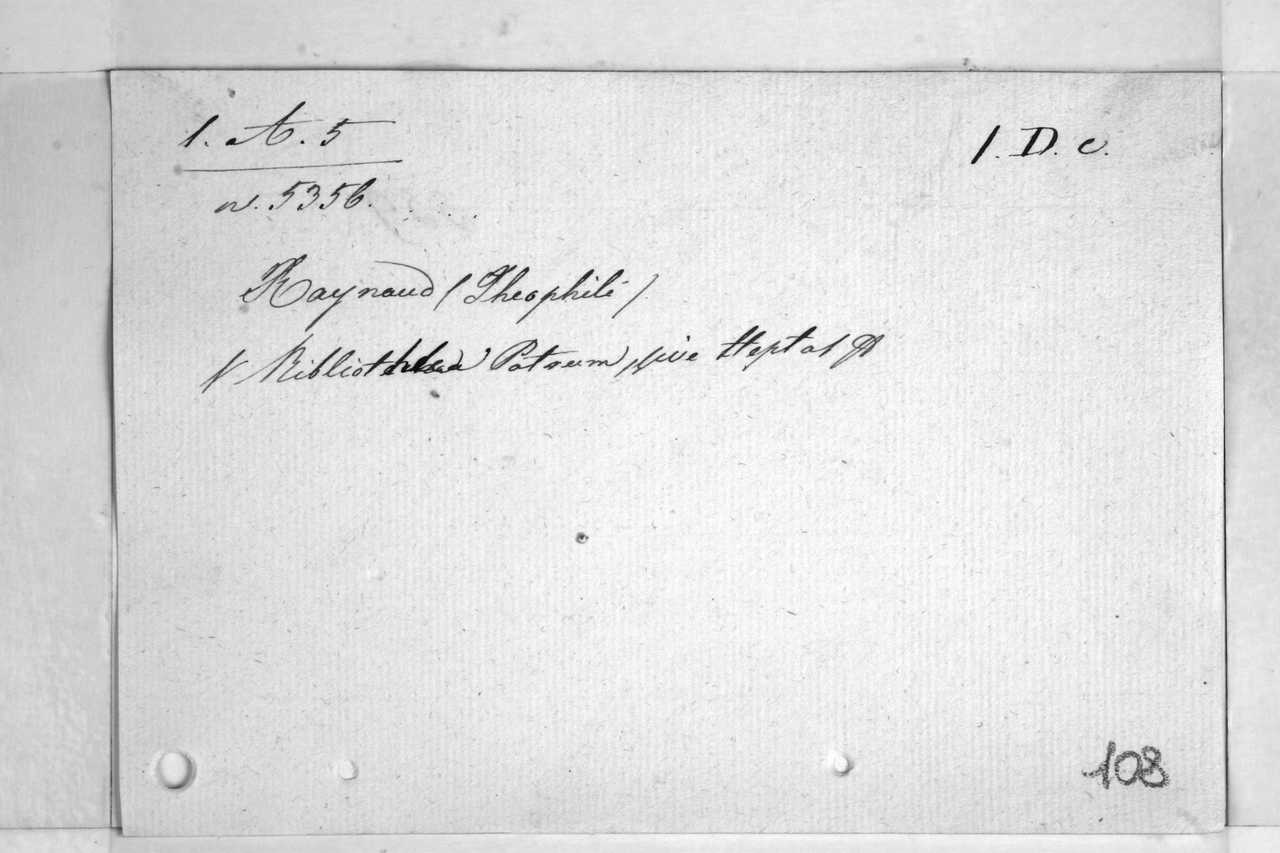 1. A. 5
1. D. c.
n. 5356.
Raynaud (Theophile)
V Bibliotheca Patrum, sive Heptas
108